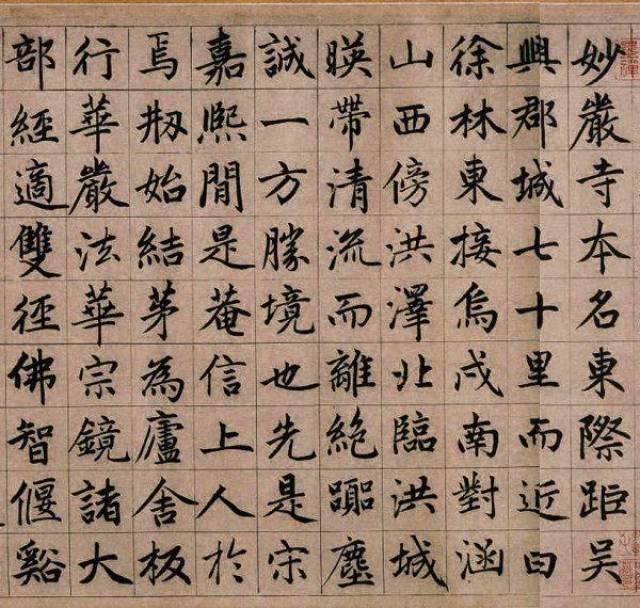 妙嚴寺本名東際距吳
興郡城七十里而近曰
徐林東接烏戍南對涵
山西傍洪澤北臨洪城
暎帶清流而離絕躧塵
誠一方勝境也先是宋
嘉熙閒是菴信上人於
焉剏始結茅為廬舍板
行華嚴法華宗鏡諸大
部經適雙徑佛智偃谿